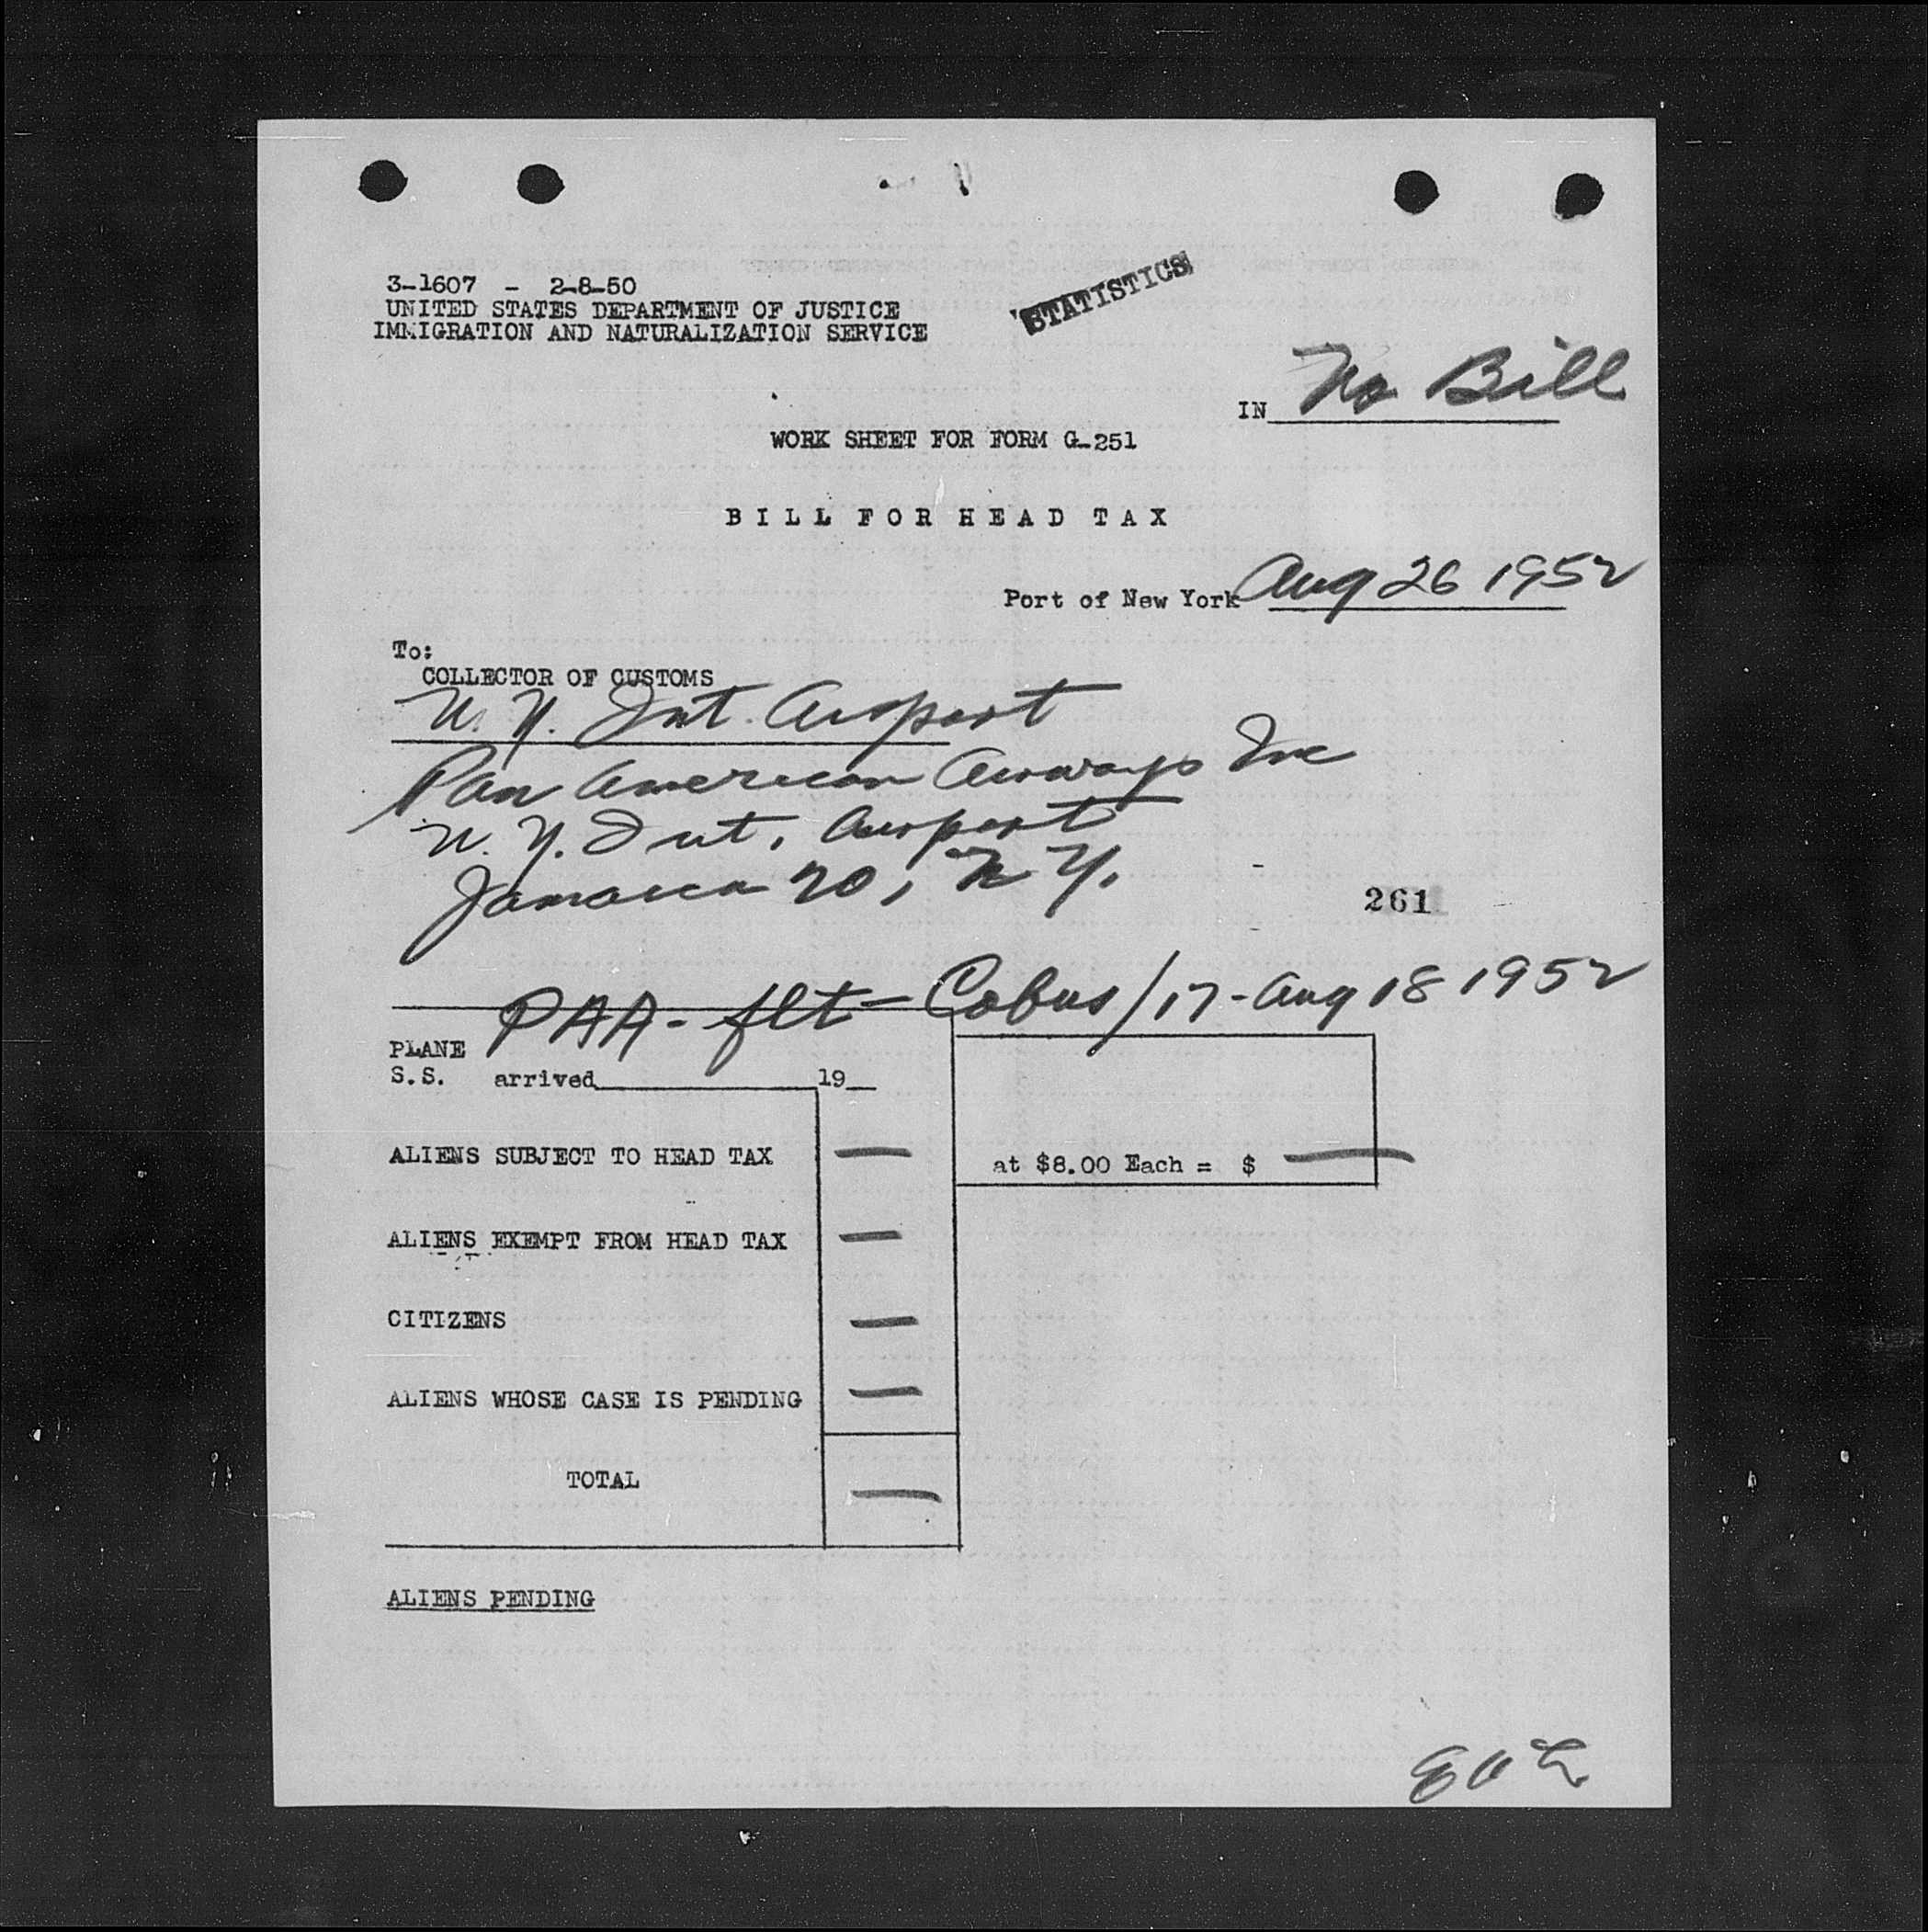 3-1607 - 2-8-50
UNITED STATES DEPARTMENT OF JUSTICE
IMMIGRATION AND NATURALIZATION SERVICE
STATISTICS
IN No Bill
WORK SHEET FOR FORM G-251
BILL FOR HEAD TAX
Port of New York Aug 26 1952
To:
COLLECTOR OF CUSTOMS
N. Y. Int. Airport
Pan American Airways Inc
N. Y. Int. Airport
Jamaica 20, N Y.
261
PAA - flt - Cobus/17 - Aug 18 1952
PLANE
S.S. arrived 19
ALIENS SUBJECT TO HEAD TAX —
at $8.00 Each = $ —
ALIENS EXEMPT FROM HEAD TAX —
CITIZENS —
ALIENS WHOSE CASE IS PENDING —
TOTAL —
ALIENS PENDING